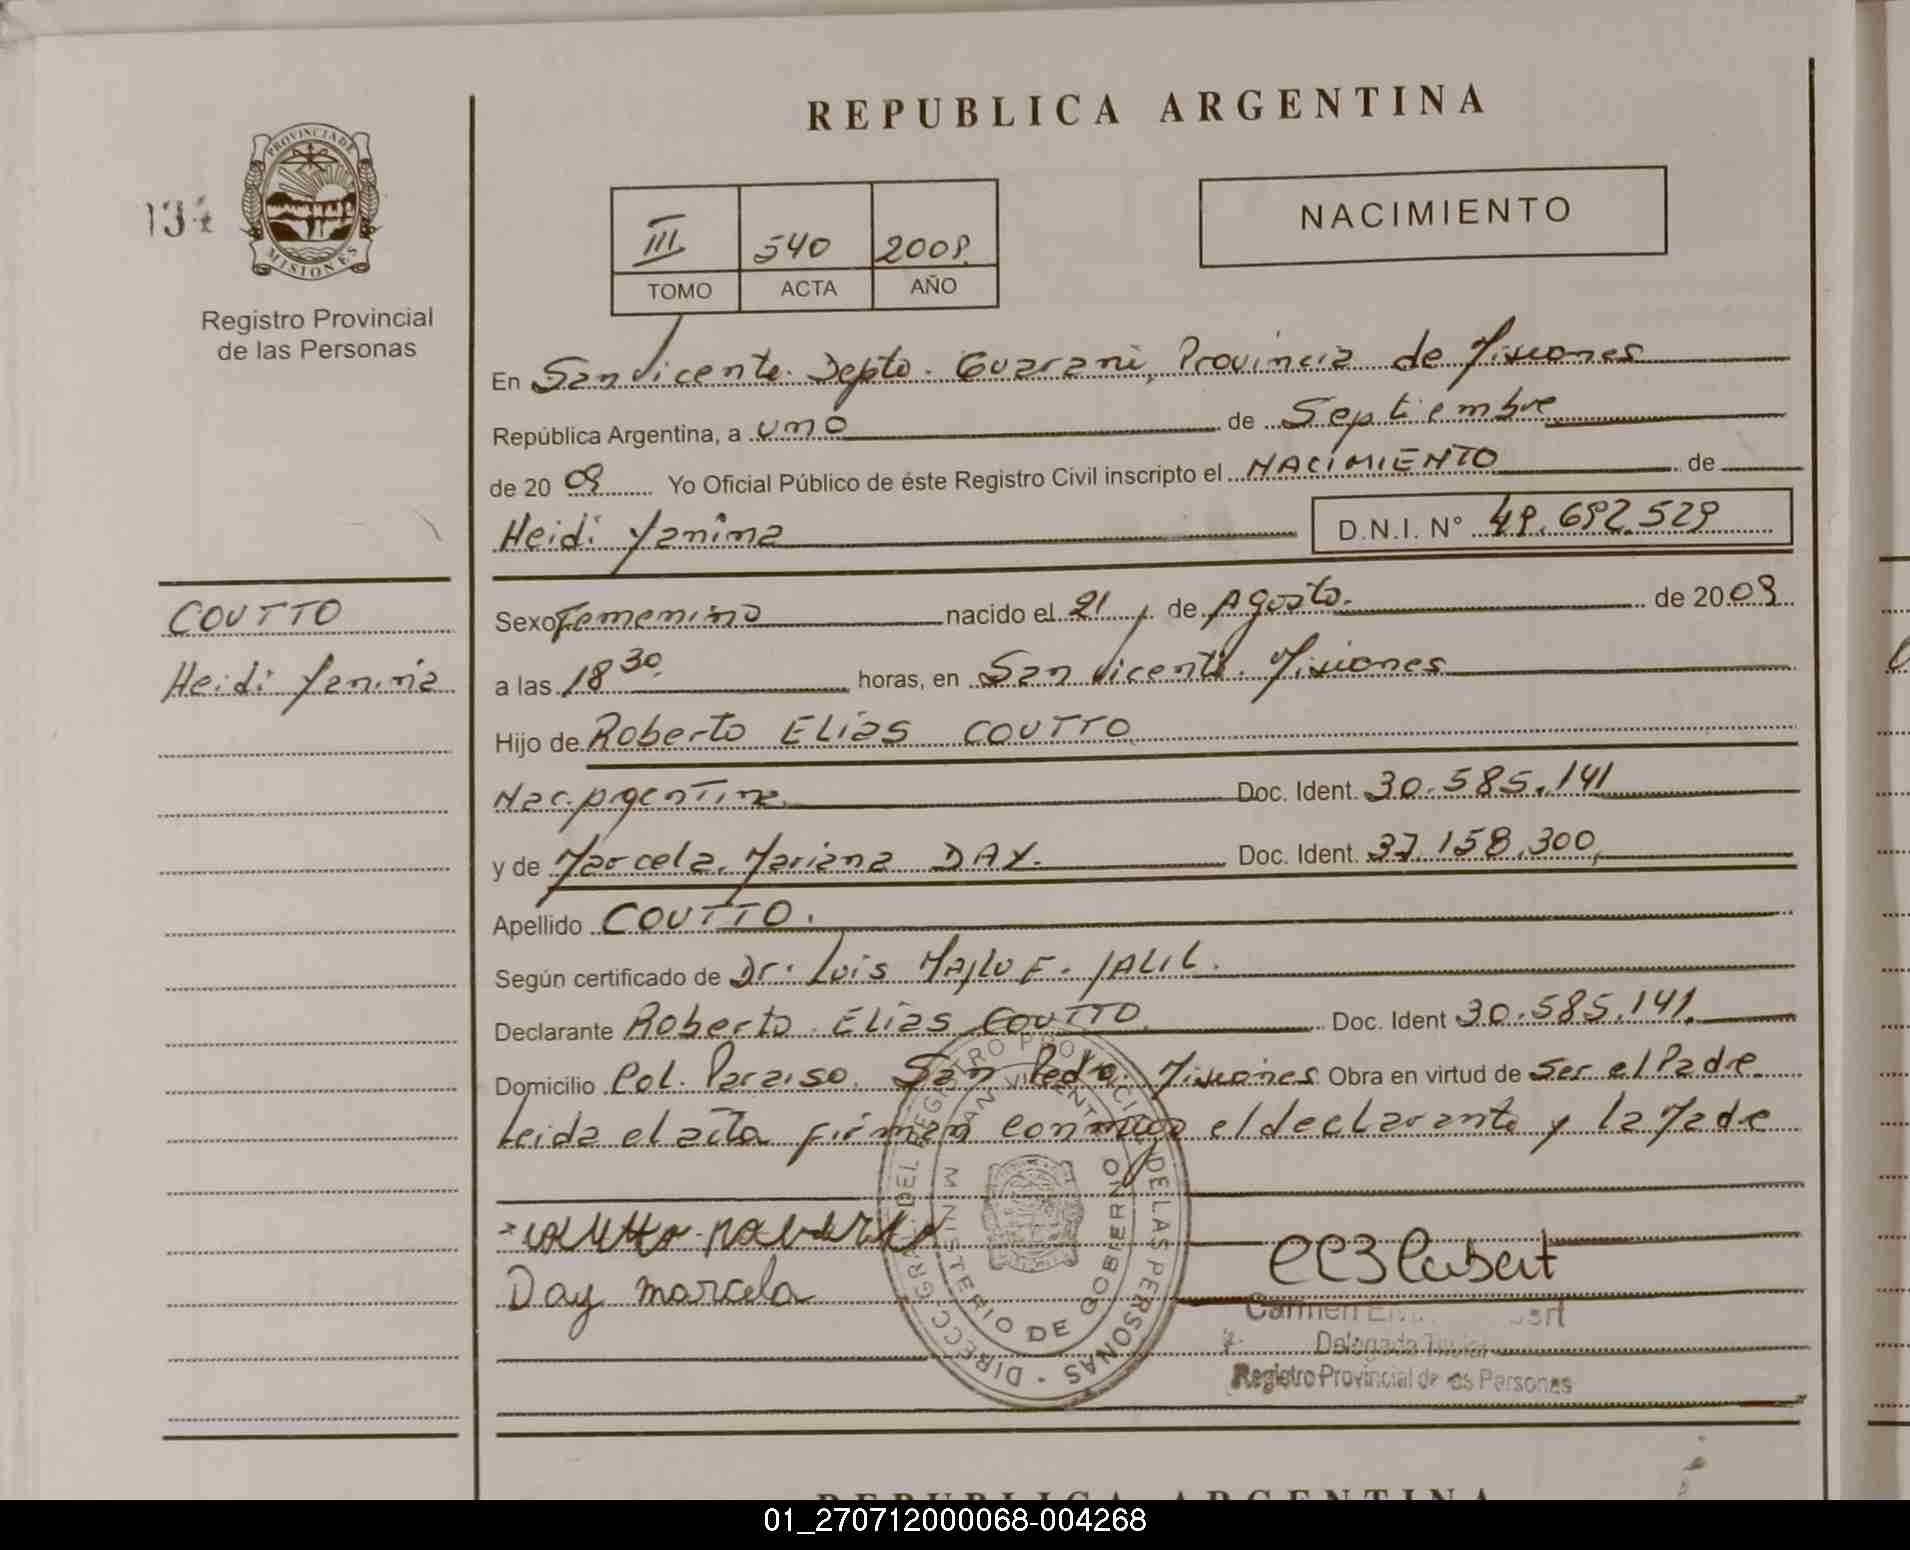 REPUBLICA ARGENTINA
134
PROVINCIA DE
MISIONES
Registro Provincial
de las Personas
III 540 2009.
TOMO ACTA AÑO
NACIMIENTO
En San Vicente. Depto. Guaraní, Provincia de Misiones
República Argentina, a uno de Septiembre
de 20 09 Yo Oficial Público de éste Registro Civil inscripto el NACIMIENTO de
Heidi Yanina D.N.I. N° 49.692.529
COUTTO
Heidi Yanina
Sexo Femenino nacido el 21 de Agosto. de 20 09
a las 18 30. horas, en San Vicente. Misiones
Hijo de Roberto Elias COUTTO
Nac. Argentina Doc. Ident. 30.585.141
y de Marcela Mariana DAY. Doc. Ident. 37.158.300
Apellido COUTTO.
Según certificado de Dr. Luis F. JALIL.
Declarante Roberto Elias COUTTO Doc. Ident 30.585.141.
Domicilio Col. Paraiso. San Pedro. Misiones Obra en virtud de ser el Padre
Leida el acta firman conmigo el declarante y la Madre
DIRECC. GRAL. DEL REGISTRO PROVINCIAL DE LAS PERSONAS
SAN VICENTE
MINISTERIO DE GOBIERNO
coutto roberto
Day marcela
Carmen
Delegada Titular
Registro Provincial de las Personas
REPUBLICA ARGENTINA
01_270712000068-004268